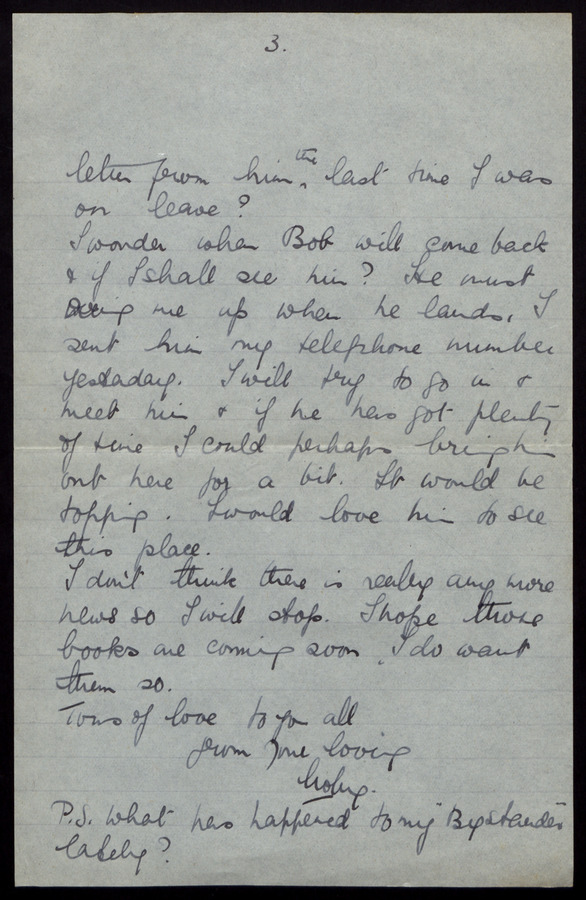 3.
letter from him, the last time I was
on leave?
I wonder when Bob will come back
& if I shall see him? He must
ring me up when he lands, I
sent him my telephone number
yestaday. I will try to go in &
meet him & if he has got plenty
of time I could perhaps bring him
out here for a bit. It would be
topping. I would love him to see
this place.
I don't think there is really any more
news so I will stop. I hope those
books are coming soon, I do want
them so.
Tons of love to you all
from your loving
P.S. What has happened to my Bystander
lately?